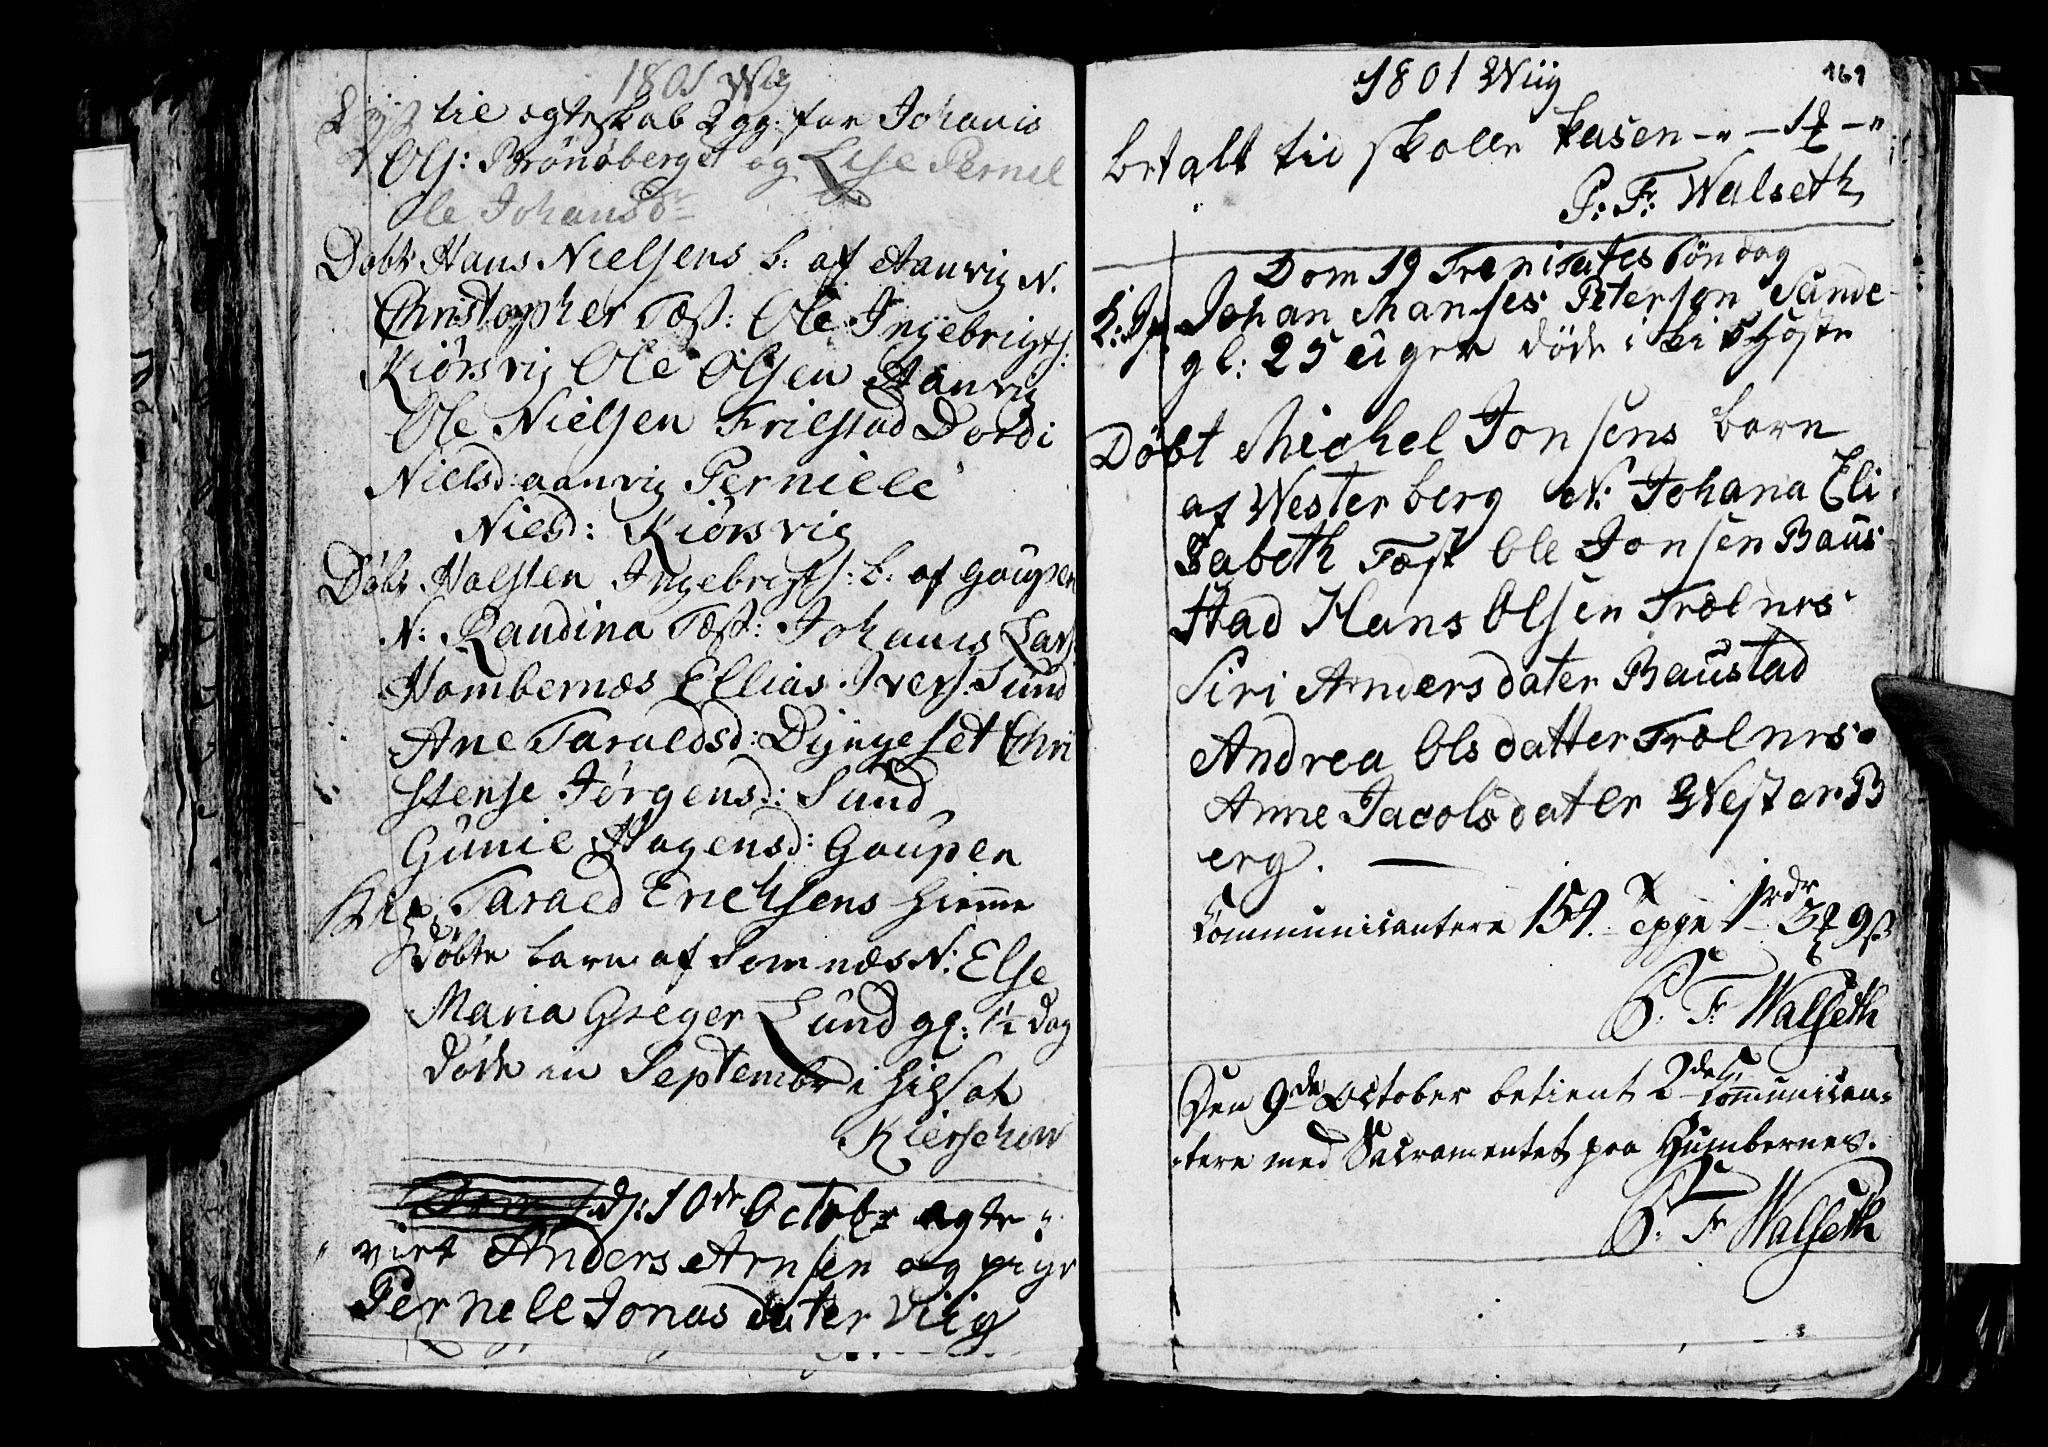 1801 Wiig
Lyst til egteskab 2 gg: for Johanis
Ols: Brönöberget og Lise Pernel
le Johansdr
Döbt Hans Nielsens b: af Aanvig N.
Christopher Test: Ole Ingebrigts:
Kiörsvig Ole Olsen Aanvig
Ole Nielsen Frilstad Dordi
Nielsd: aanvig Perniele
Nielsd: Kiörsvig
Döbt Halsten Ingebrigts: b: af Gaupen
N: Randina Test: Johanis Lars
Hombernæs Ellias Ivers. Sund
Ane Taraldsd: Dyngeset Chri
stense Jörgensd: Sund
Gunie Hagensd: Gaupen
Tarald Erichsens hieme
döbte barn af Somnæs N: Else
Maria Greger Lund gl: 1½ Dag
döde in Septembr i
Kierschow
d: 10de Octobr egte
viet Anders Arnsen og pige
Pernele Jonas dater Viig
1801 Wiig 169
betalt til skolle kasen -"- 1 -"
P: F: Walseth
Dom 19 Trenitates Söndag
J: P: Johan Manses Peterson Sande
gl: 25 uger döde i
Döbt Michel Jonsens barn
af Westerberg N: Johana Eli
sabeth Test Ole Jonsen Baus
stad Hans Olsen Trælnes
Siri Andersdater Baustad
Andrea Olsdatter Trælnes
Anne Jacobsdater Wester B
erg.
Communicantere 154.
P. F. Walseth
Den 9de October betient 2de Communican=
=tere med Sacramentet paa Humbernes.
P. F. Walseth